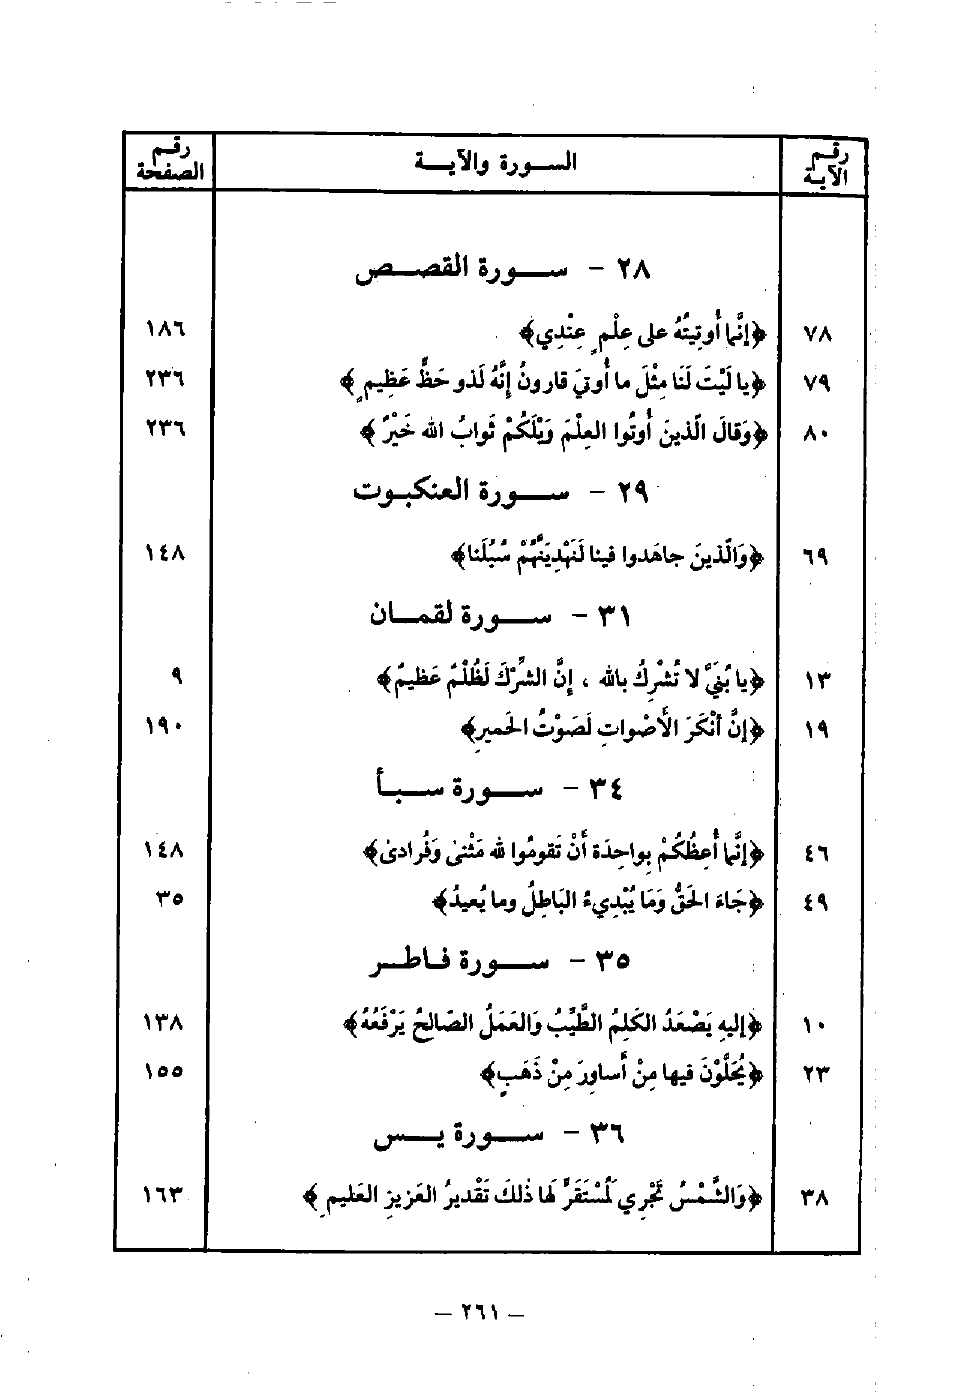 رقم الآية السورة والآية رقم الصفحة
٢٨ - سورة القصص
٧٨ ﴿إنَّما أُوتِيتُهُ على عِلْمٍ عِنْدِي﴾ ١٨٦
٧٩ ﴿يا لَيْتَ لَنا مِثْلَ ما أُوتيَ قارونُ إنَّهُ لَذو حَظٍّ عَظِيمٍ﴾ ٢٣٦
٨٠ ﴿وَقالَ الّذينَ أُوتُوا العِلْمَ وَيْلَكُمْ ثَوابُ الله خَيْرٌ﴾ ٢٣٦
٢٩ - سورة العنكبوت
٦٩ ﴿وَالّذينَ جاهَدوا فينا لَنَهْدِيَنَّهُمْ سُبُلَنا﴾ ١٤٨
٣١ - سورة لقمان
١٣ ﴿يا بُنَيَّ لا تُشْرِكْ بالله ، إنَّ الشِّرْكَ لَظُلْمٌ عَظيمٌ﴾ ٩
١٩ ﴿إنَّ أنْكَرَ الأَصْواتِ لَصَوْتُ الحَميرِ﴾ ١٩٠
٣٤ - سورة سبأ
٤٦ ﴿إنَّما أَعِظُكُمْ بِواحِدَة أَنْ تَقومُوا لله مَثْنى وَفُرادى﴾ ١٤٨
٤٩ ﴿جَاءَ الحَقُّ وَمَا يُبْدِيءُ البَاطِلُ وما يُعيدُ﴾ ٣٥
٣٥ - سورة فاطر
١٠ ﴿إليهِ يَصْعَدُ الكَلِمُ الطَّيِّبُ وَالعَمَلُ الصّالحُ يَرْفَعُهُ﴾ ١٣٨
٢٣ ﴿يُحَلَّوْنَ فيها مِنْ أَساوِرَ مِنْ ذَهَبٍ﴾ ١٥٥
٣٦ - سورة يس
٣٨ ﴿وَالشَّمْسُ تَجْرِي لِمُسْتَقَرٍّ لَها ذلكَ تَقْديرُ العَزيزِ العَليمِ﴾ ١٦٣
— ٢٦١ —